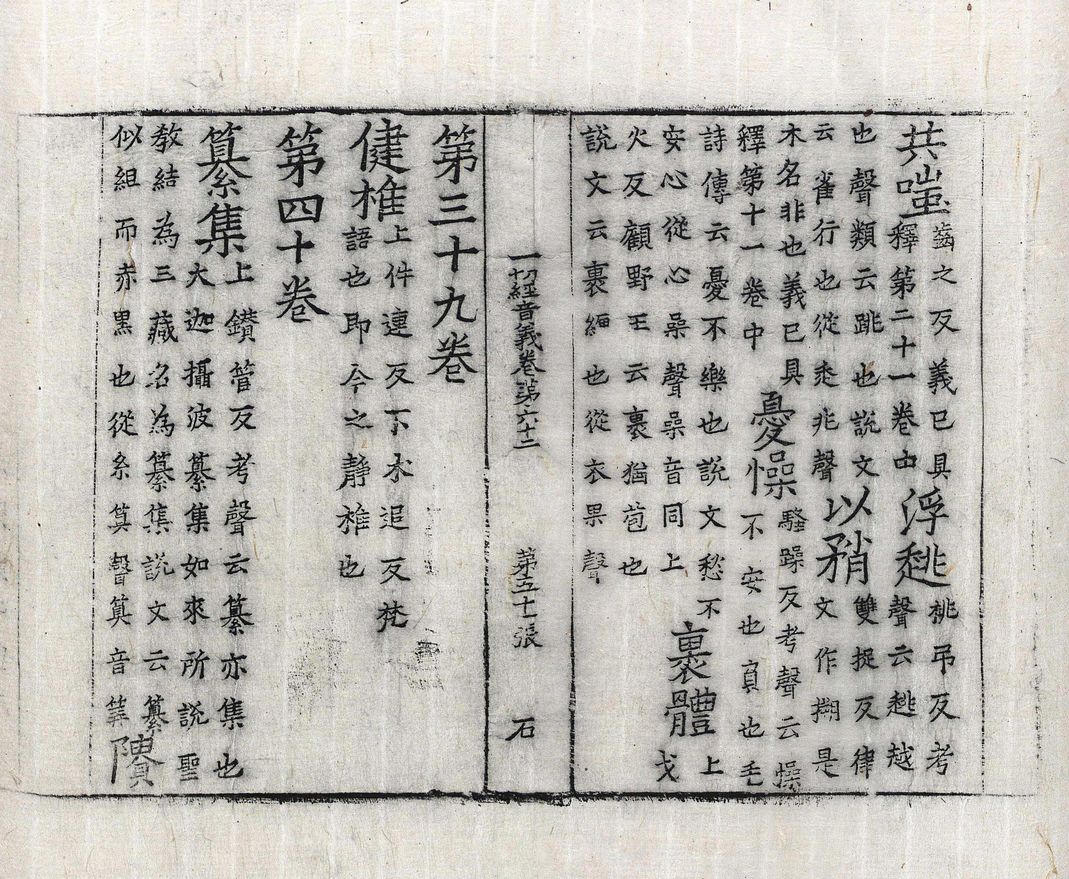 共嗤齒之反義已具浮趒桃吊反考
釋第二十一卷中聲云趒越
也聲類云跳也説文以矟雙捉反律
云雀行也從走兆聲文作搠是
木名非也義已具憂懆騷躁反考聲云懆
釋第十一卷中不安也負也毛
詩傳云憂不樂也説文愁不裹體上
安心從心喿聲喿音同上戈
火反顧野王云裹猶苞也
説文云裹緾也從衣果聲
一切經音義卷第六十二 第五十張 石
第三十九卷
健椎上件連反下木追反梵
語也即今之静椎也
第四十卷
纂集上鑚管反考聲云纂亦集也
大迦攝波纂集如來所説聖
教結為三藏名為纂集説文云纂
似組而赤黒也從糸算聲算音筭